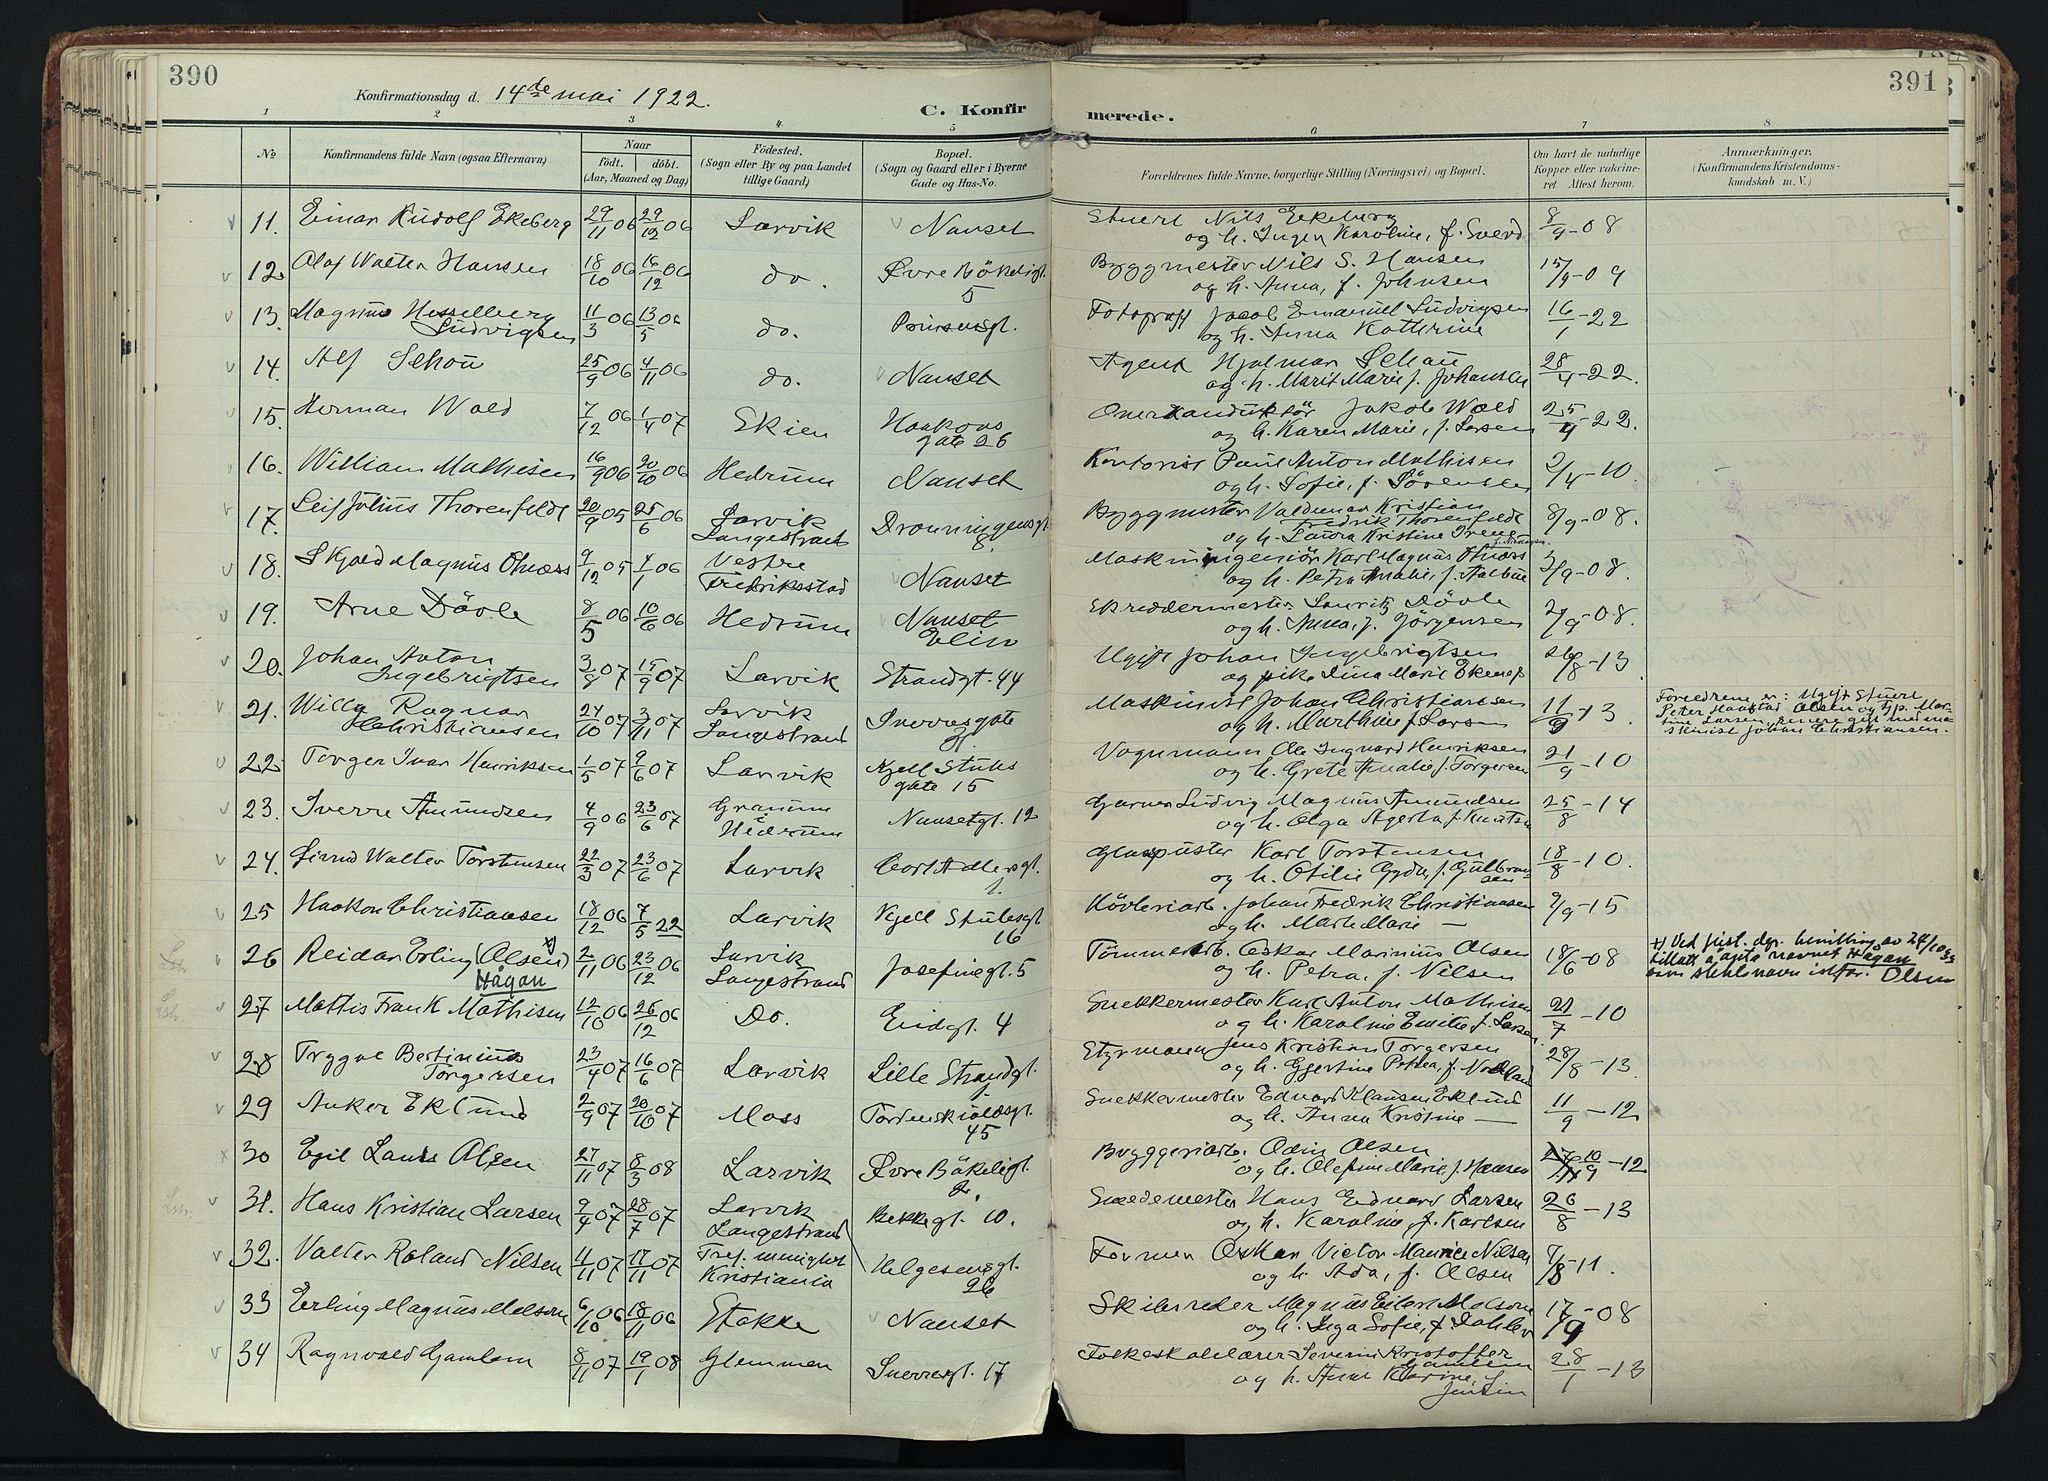 390
391
Konfirmationsdag d. 14de mai 1922.
C. Konfirmerede.
1 2 3 4 5 6 7 8
No
Konfirmandens fulde Navn (ogsaa Efternavn)
Naar
født. døbt.
(Aar, Maaned og Dag)
Fødested.
(Sogn eller By og paa Landet
tillige Gaard)
Bopæl.
(Sogn og Gaard eller i Byerne
Gade og Hus-No.
Forældrenes fulde Navne, borgerlige Stilling (Næringsvei) og Bopæl.
Om havt de naturlige
Kopper eller vakcine-
ret. Attest herom.
Anmærkninger.
(Konfirmandens Kristendoms-
kundskab m. V.)
11. Einar Rudolf Ekeberg 29/11 06 29/12 06 Larvik Nanset Stuert Nils Ekeberg 8/9-08
og h. Inger Karoline, f. Sverd
12. Olaf Walter Hansen 18/10 06 16/12 06 do. Øvre Bökeligt. Byggmester Nils S. Hansen 15/9-09
5 og h. Anna, f. Johnsen
13. Magnus Hesselberg 11/3 06 13/5 06 do. Prinsensgt. Fotograf Jacob Emanuel Ludvigsen 16/1-22
Ludvigsen og h. Anna Kathrine
14. Alf Schou 25/9 06 4/11 06 do. Nanset Agent Hjalmar Schau 28/4-22.
og h. Marit Marie f. Johansen
15. Herman Wold 7/12 06 1/4 07 Skien Haakons Overkonduktör Jakob Wold 25/4-22.
gate 26 og h. Karen Marie, f. Larsen
16. William Mathisen 16/9 06 20/10 06 Hedrum Nanset Kontorist Paul Anton Mathisen 2/4-10
og h. Sofie, f. Sörensen
17. Leif Julius Thorenfeldt 20/9 05 25/6 06 Larvik Dronningensgt. Byggmester Valdemar Kristian 8/9-08.
Langestrand 8. Fredrik Thorenfeldt
og h. Laura Kristine Irene
18. Skjold Magnus Olness 9/12 05 1/1 06 Vestre Nanset Maskiningeniør Karl Magnus Olness 3/9-08.
Fredriksstad og h. Petra Amalie, f. Aalbue
19. Arne Dövle 8/5 06 10/6 06 Hedrum Nanset Skreddermester Lauritz Dövle 2/9-08.
og h. Anna, f. Jörgensen
20. Johan Anton 3/8 07 15/9 07 Larvik Strandgt. 44 Ugift Johan Ingebrigtsen 26/8-13
Ingebrigtsen og pike Lina Marie Ekenes
21. Willy Ragnar 24/10 07 3/11 07 Larvik Sverresgate Maskinist Johan Christiansen 11/9-13.
Christiansen Langestrand og h. Marthine f. Larsen
Foreldrene er: Ugift Stuert
Peter Haastad Olsen og tjp. Mar-
tine Larsen, senere gift med ma-
skinist Johan Christiansen.
22. Torger Ivar Henriksen 1/5 07 9/6 07 Larvik Kjell Stubs Vognmann Ole Ingvard Henriksen 21/9-10
gate 15 og h. Grete Amalie f. Torgersen
23. Sverre Amundsen 4/9 06 23/6 07 Granum Nansetgt. 12 Garver Ludvig Magnus Amundsen 25/8-14
i Hedrum og h. Olga Agerta f. Knutsen
24. Eivind Walter Torstensen 22/3 07 23/6 07 Larvik Carl Adlersgt. Glaspuster Karl Torstensen 18/8-10.
og h. Otilie Gyda, f. Gulbran-
sen
25 Haakon Christiansen 18/12 06 7/5 22 Larvik Kjell Stubsgt. Hövleriarb. Johan Fredrik Christiansen 9/9-15
16 og h. Marte Marie —
26 Reidar Erling (Olsen x) 2/11 06 23/12 06 Larvik Josefinegt. 5 Tømmerarb. Oskar Marinius Olsen 18/6-08
Hågan Langestrand og h. Petra, f. Nilsen
x) Ved just. dep. bevilling av 24/10 33
tillatt å anta navnet Hågan
som slektsnavn istfor. Olsen
27 Mattis Frank Mathisen 12/10 06 26/12 06 Do. Eridgt. 4 Snekkermester Karl Anton Mathisen 21/7-10
og h. Karoline Emilie f. Larsen.
28 Trygve Bertinius 23/4 07 16/6 07 Larvik Lille Strandgt. Styrmann Jens Kristian Torgersen 28/8-13
Torgersen og h. Gjertine Petrea, f. Nordland
29 Anker Eklund 2/9 07 20/10 07 Moss Tordenskioldsgt. Snekkermester Edvard Klausen Eklund 11/9-12
45 og h. Anna Kristine —
30 Egil Laurits Olsen 27/11 07 8/3 08 Larvik Øvre Bökeligt. Bryggeriarb. Odin Olsen 10/9-12
2. og h. Olefine Marie, f. Hansen
31. Hans Kristian Larsen 9/4 07 28/7 07 Larvik Bekkegt. 10. Smedemester Hans Edvard Larsen 26/8-13
Langestrand og h. Karoline, f. Karlsen
32. Valter Roland Nilsen 4/11 07 17/11 07 Tref. menighet Helgesensgt. Former Oskar Victor Maurice Nilsen 7/8-11.
Kristiania 26 og h. Ada, f. Olsen
33 Erling Magnus Melsom 6/10 06 18/11 06 Stokke Nanset Skibsreder Magnus Eilert Melsom 17/9-08
og h. Inga Sofie, f. Dahler
34 Ragnvald Gamlem 8/11 07 19/1 08 Glemmen Sverresgt. 17 Folkeskolelærer Severin Kristoffer 28/1-13
Gamlem
og h. Anne Karine, f.
Jensen